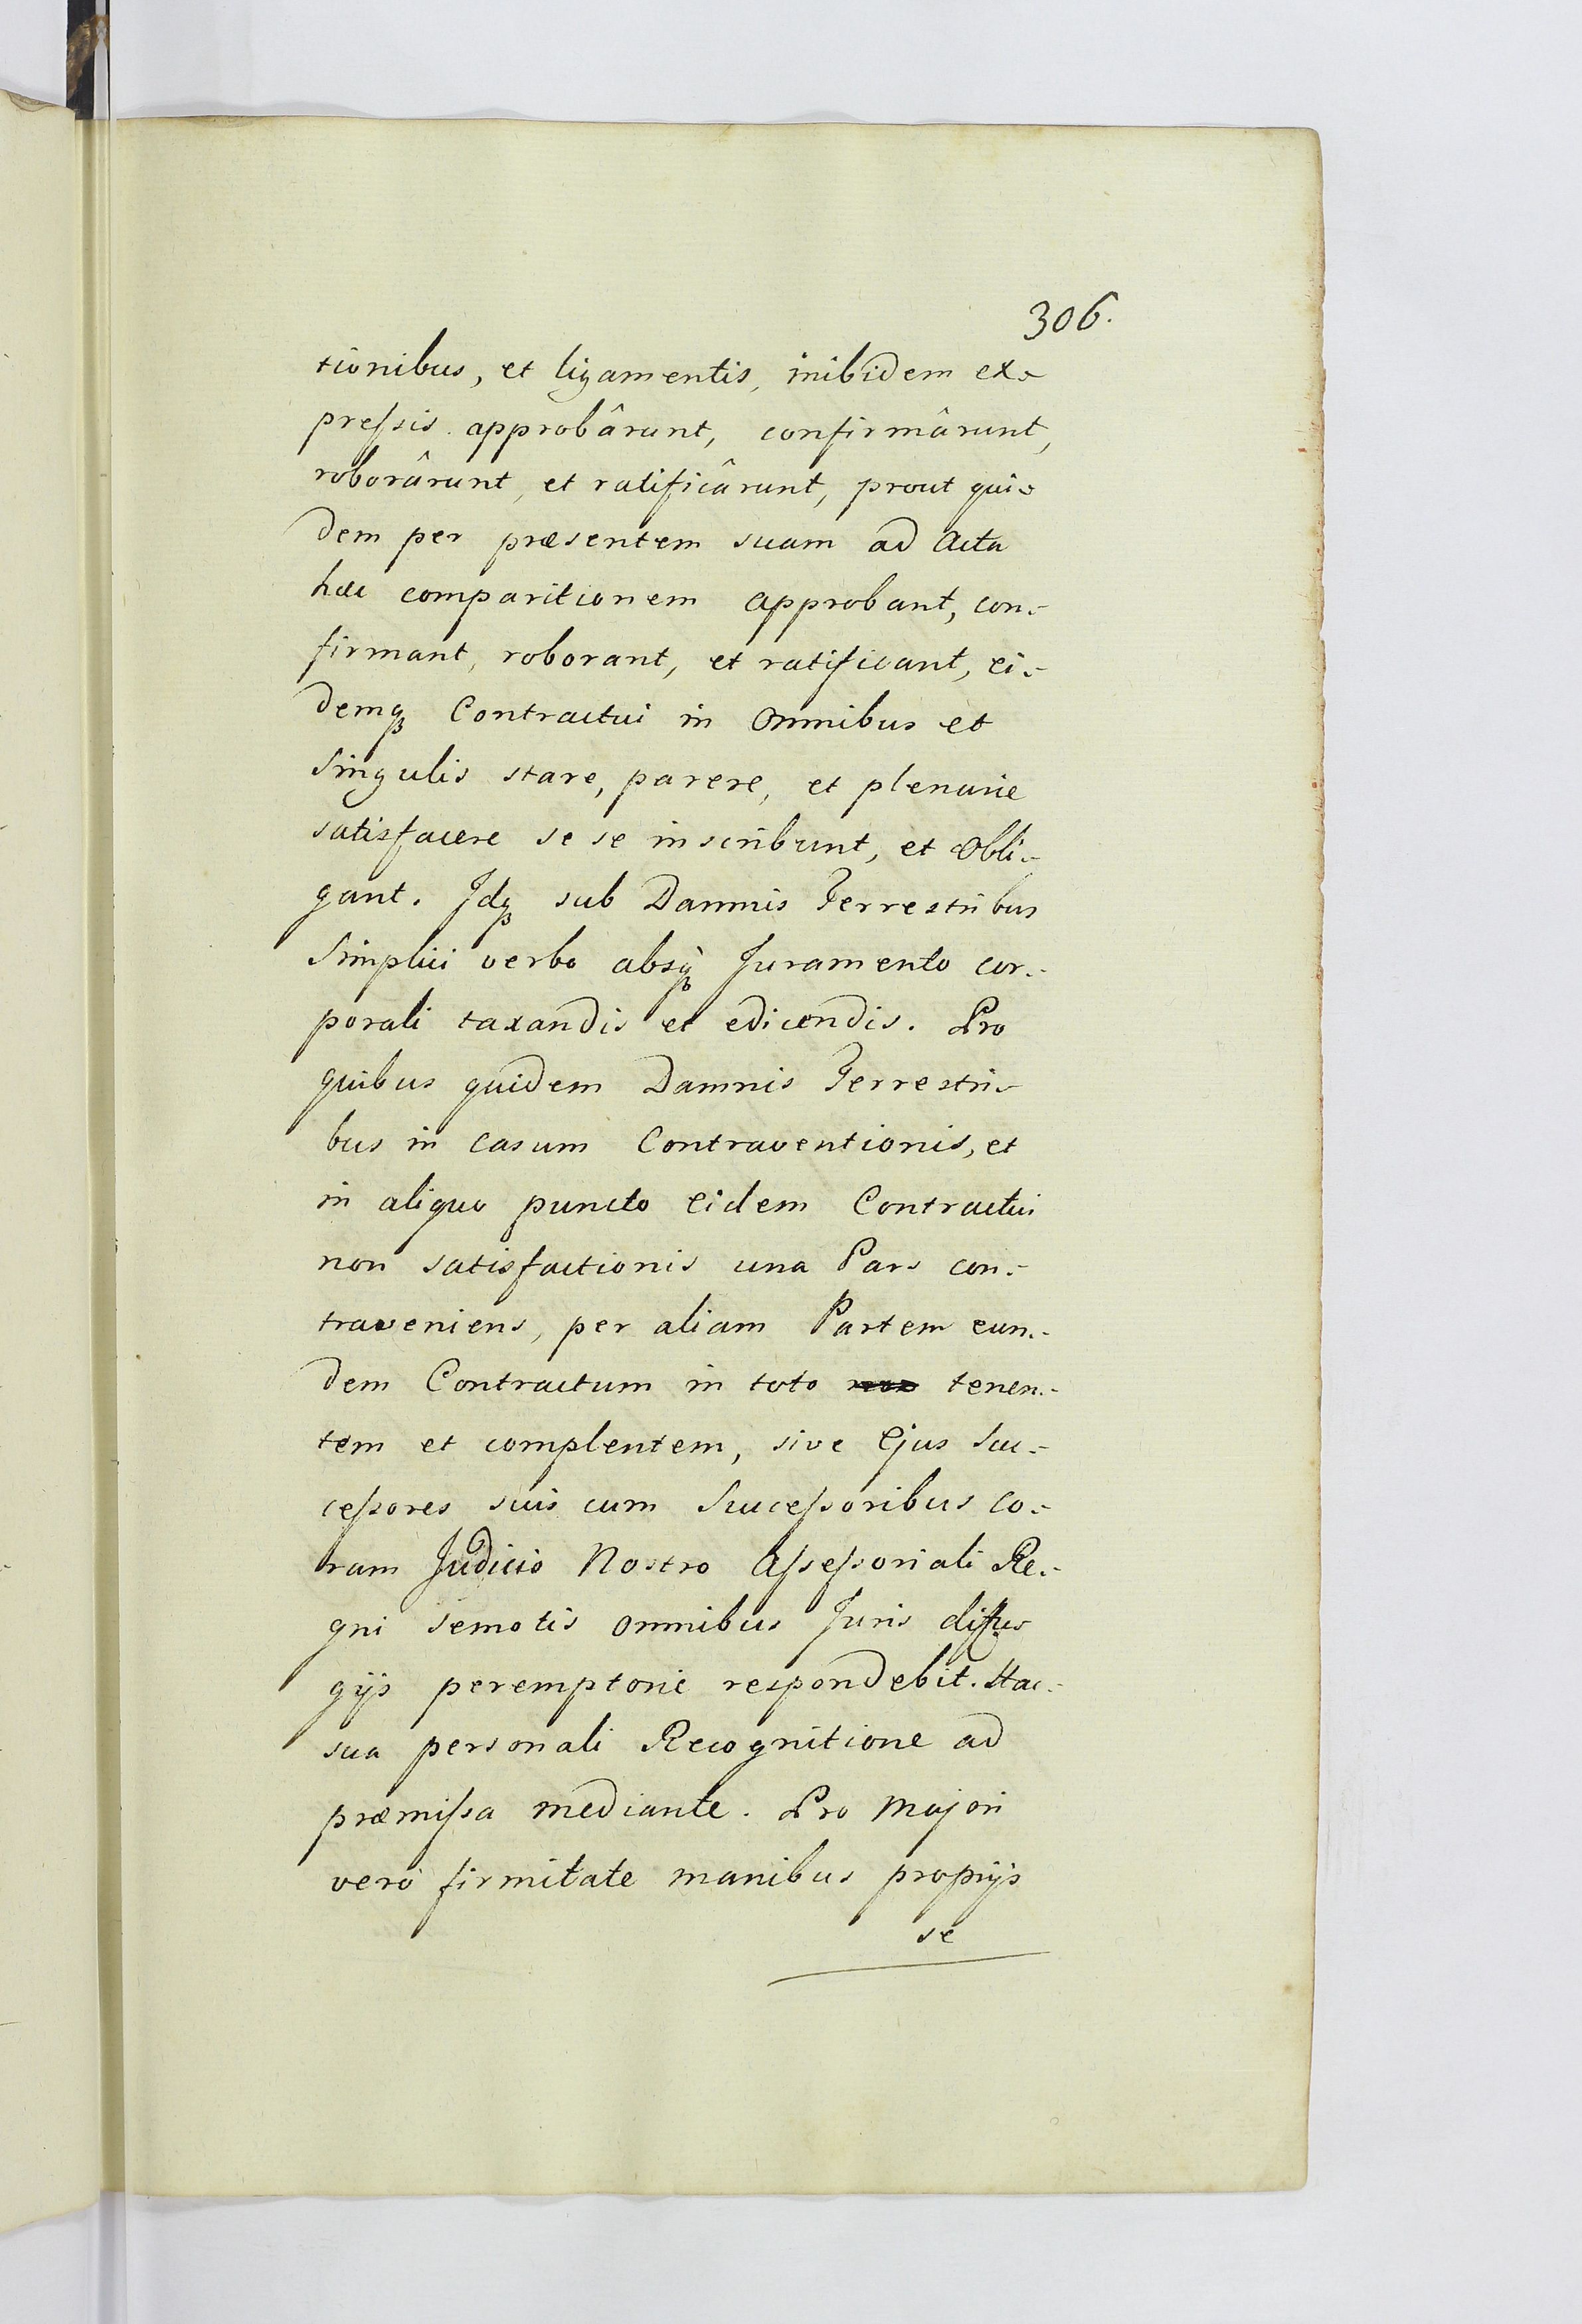 306.
tionibus, et ligamentis, inibidem ex-
pressis approbârunt, confirmârunt,
roborârunt, et ratificârunt, prout qui-
dem per præsentem suam ad Acta
hæc comparitionem approbant, con-
firmant, roborant, et ratificant, ei-
demq₃ Contractui in Omnibus et
Singulis stare, parere, et plenarie
satisfacere se se inscribunt, et Obli-
gant. Idq₃ sub Damnis Terrestribus
Simplici verbo absq₃ Juramento cor-
porali taxandis et edicendis. Pro
quibus quidem Damnis Terrestri-
bus in casum Contraventionis, et
in aliquo puncto Eidem Contractui
non satisfactionis una Pars con-
traveniens, per aliam Partem eun-
dem Contractum in toto tenen-
tem et complentem, sive Ejus Suc-
cessores suis cum Successoribus co-
ram Judicio Nostro Assessoriali Re-
gni semotis omnibus Juris diffu-
gijs peremptorie respondebit. Hac
sua personali Recognitione ad
præmissa mediante. Pro Majori
verò firmitate manibus proprijs
se